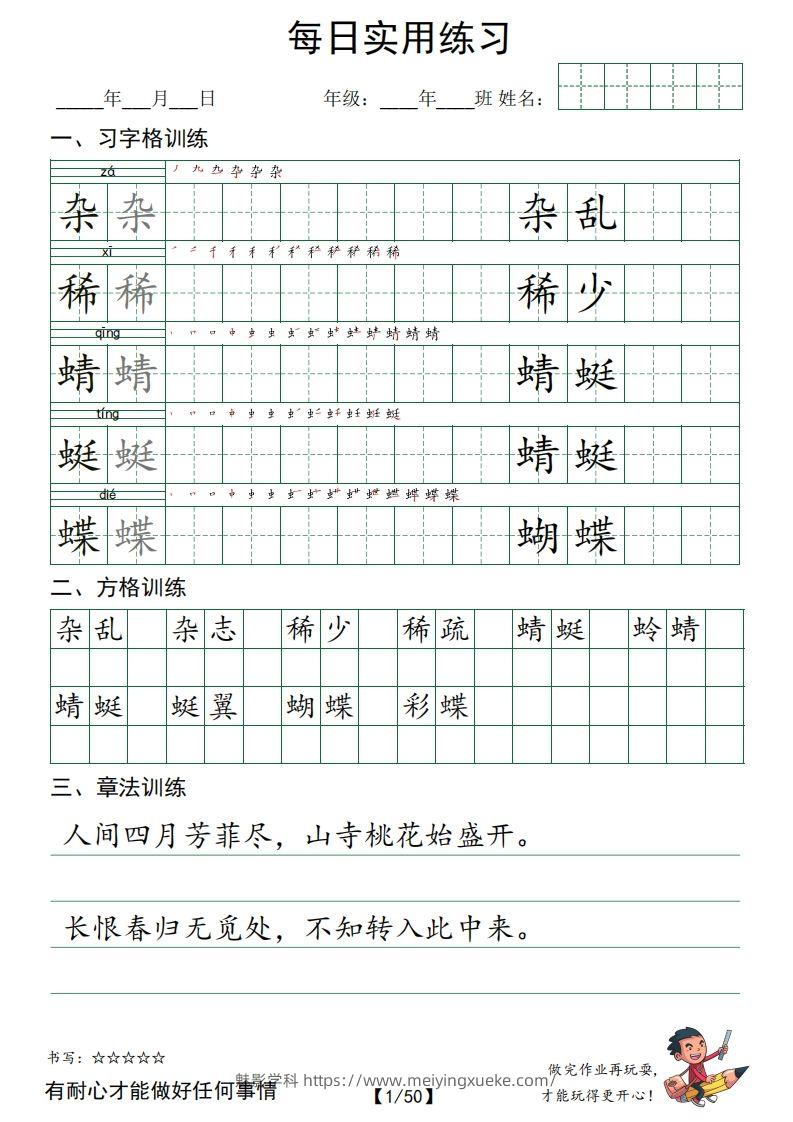 每日实用练习
_____年___月___日 年级：____年____班 姓名：
一、习字格训练
zá
杂 杂 杂 乱
xī
稀 稀 稀 少
qīng
蜻 蜻 蜻 蜓
tíng
蜓 蜓 蜻 蜓
dié
蝶 蝶 蝴 蝶
二、方格训练
杂乱 杂志 稀少 稀疏 蜻蜓 蛉蜻
蜻蜓 蜓翼 蝴蝶 彩蝶
三、章法训练
人间四月芳菲尽，山寺桃花始盛开。
长恨春归无觅处，不知转入此中来。
书写：☆☆☆☆☆
有耐心才能做好任何事情
魅影学科 https://www.meiyingxueke.com/
【1/50】
做完作业再玩耍，
才能玩得更开心！